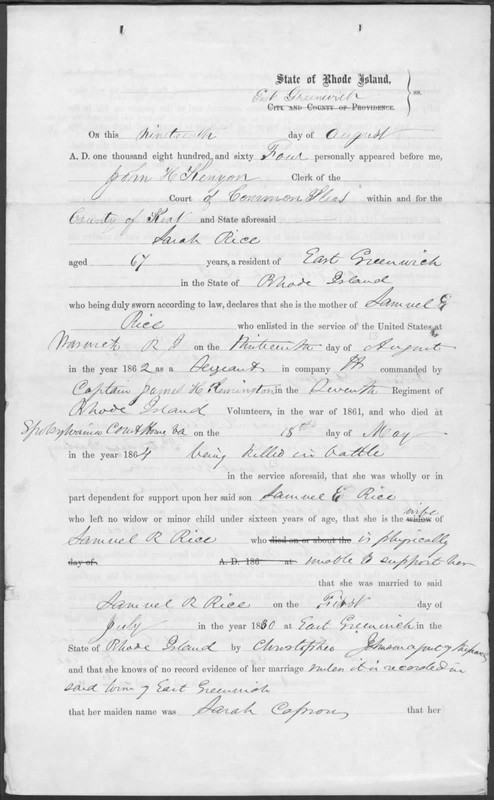 State of Rhode Island,
East Greenwich } ss.
CITY AND COUNTY OF PROVIDENCE.
ON this Nineteenth day of August
A. D. one thousand eight hundred, and sixty Four personally appeared before me,
John H Kenyon Clerk of the
Court of Common Pleas within and for the
County of Kent and State aforesaid
Sarah Rice
aged 67 years, a resident of East Greenwich
in the State of Rhode Island
who being duly sworn according to law, declares that she is the mother of Samuel E
Rice who enlisted in the service of the United States at
Warwick R I on the day of August
in the year 1862 as a Sergeant in company commanded by
Captain James H Remington, in the Seventh Regiment of
Rhode Island Volunteers, in the war of 1861, and who died at
Spotsylvania Court House Va on the 18th day of May
in the year 1864 being killed in battle
in the service aforesaid, that she was wholly or in
part dependent for support upon her said son Samuel E Rice
who left no widow or minor child under sixteen years of age, that she is the widow wife of
Samuel R Rice who died on or about the is physically
day of A. D. 186 at unable to support her
that she was married to said
Samuel R Rice on the First day of
July in the year 18 at East Greenwich in the
State of Rhode Island by Christopher Johnson a Just of the peace
and that she knows of no record evidence of her marriage unless it is recorded in
said town of East Greenwich
that her maiden name was Sarah Capron that her